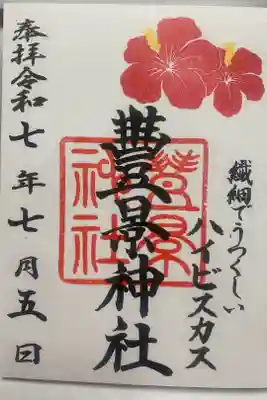 繊細でうつくしい
ハイビスカス
豊景神社
豊景
神社
奉拝令和七年七月五日